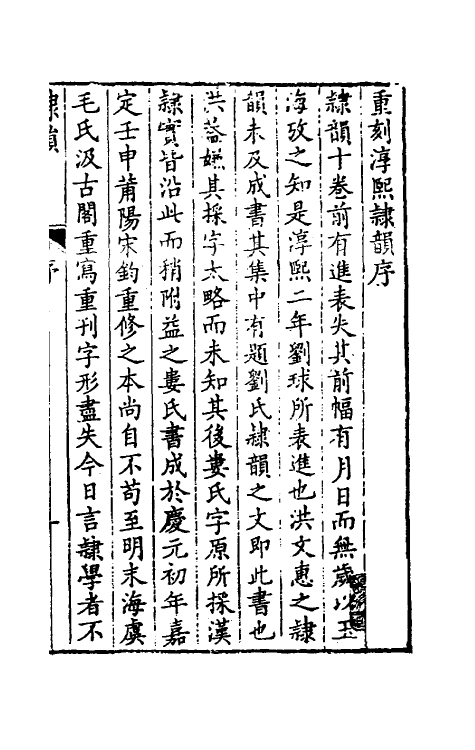 重刻淳熙隸韻序
隸韻十卷前有進表失其前幅有月日而無歲以玉
海攷之知是淳熙二年劉球所表進也洪文惠之隸
韻未及成書其集中有題劉氏隸韻之文即此書也
洪葢嫌其採字太略而未知其後婁氏字原所採漢
隸實皆沿此而稍附益之婁氏書成於慶元初年嘉
定壬申莆陽宋鈞重修之本尚自不苟至明末海虞
毛氏汲古閣重寫重刊字形盡失今日言隸學者不
隸韻
序